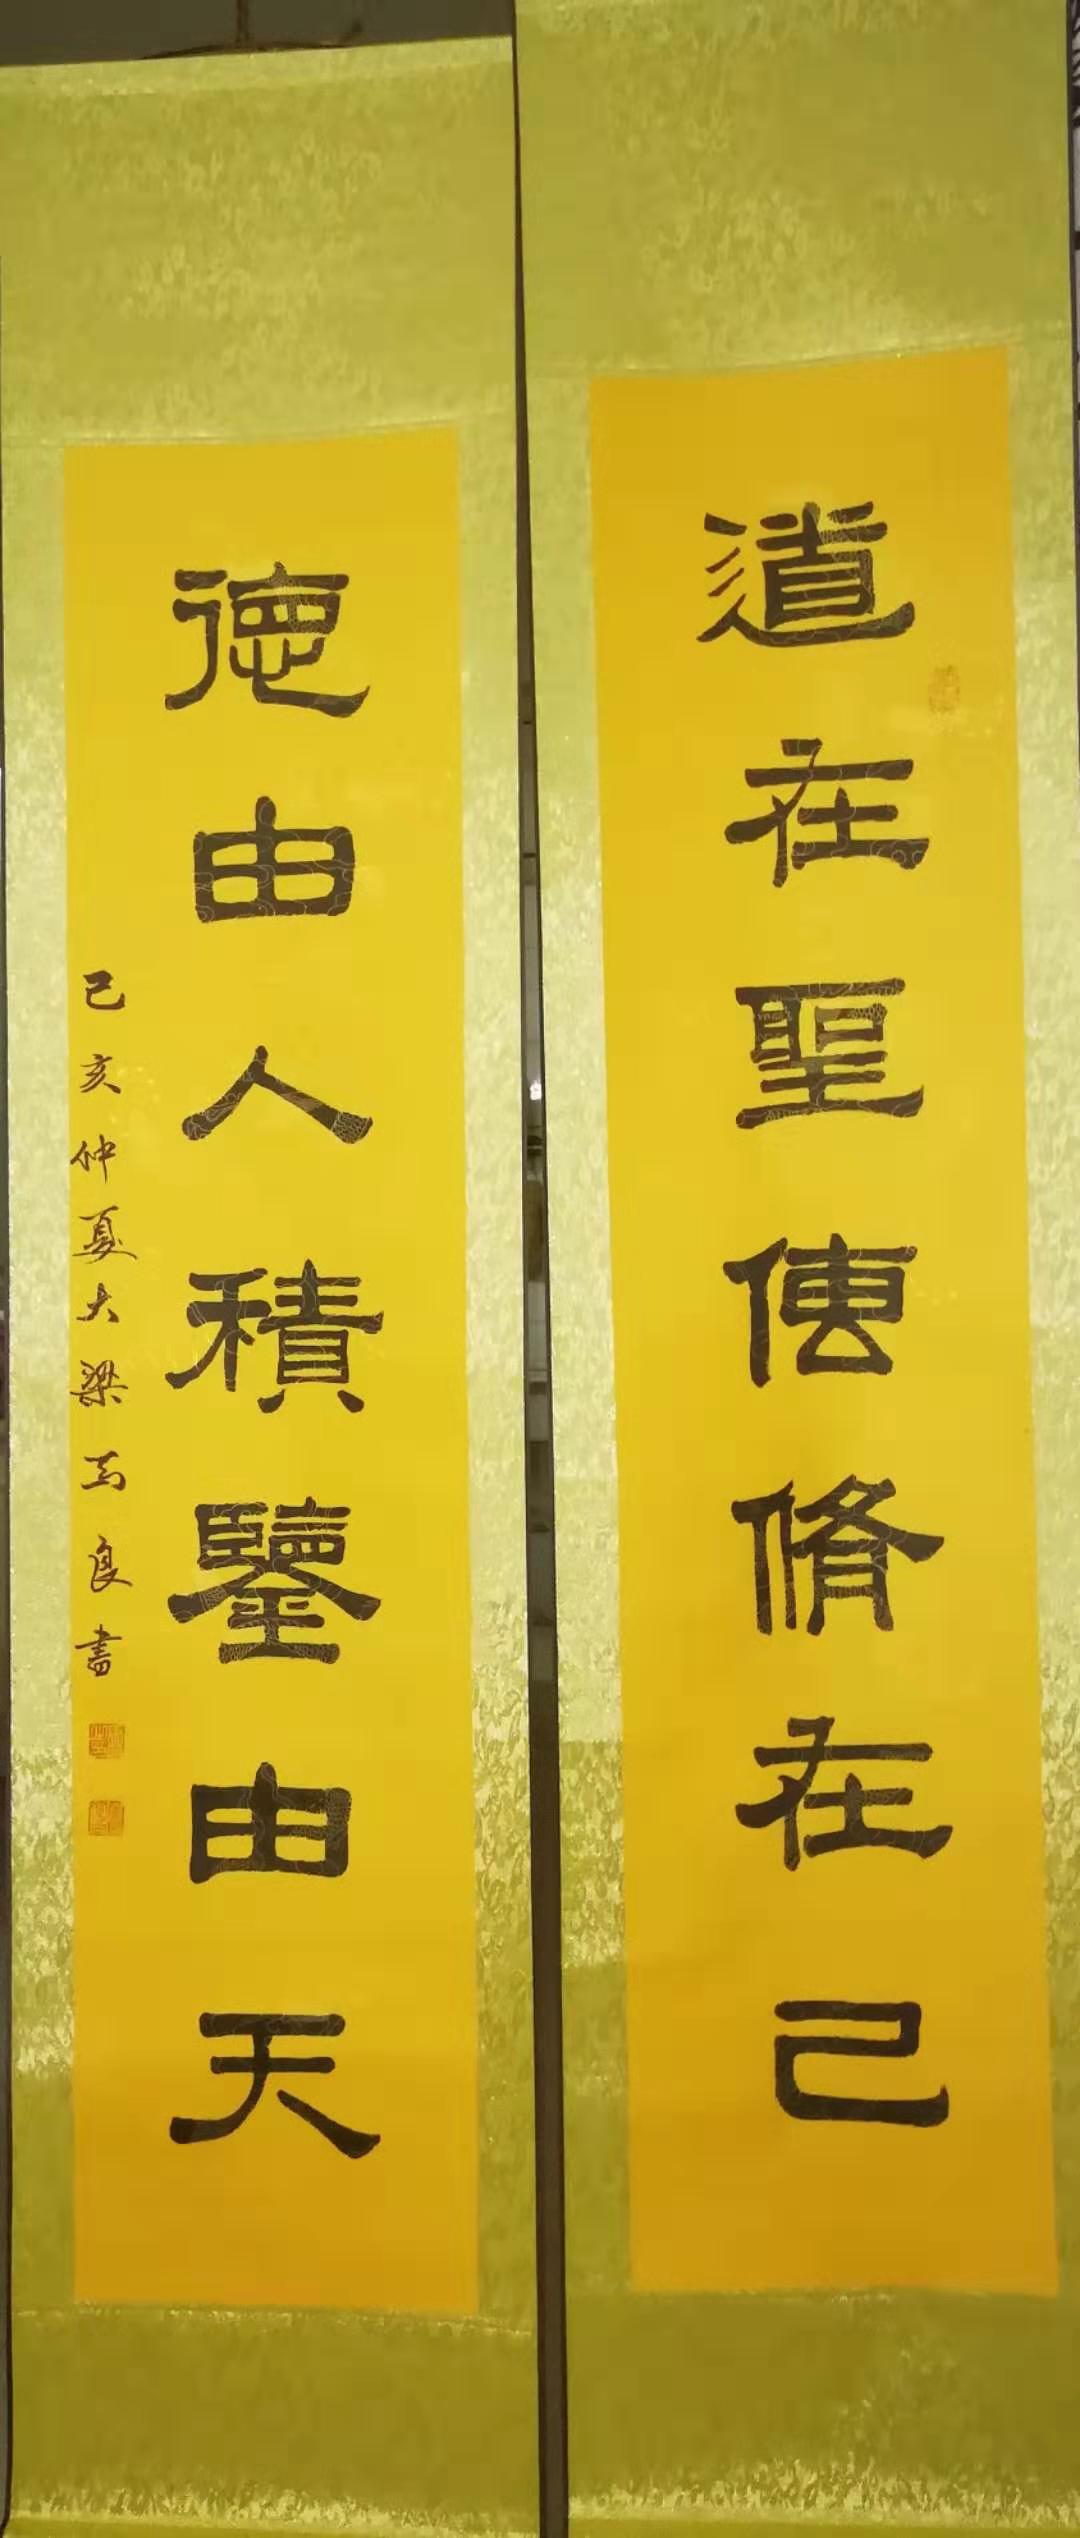 道在聖傳脩在己
德由人積鑒由天
己亥仲夏大梁馬良書